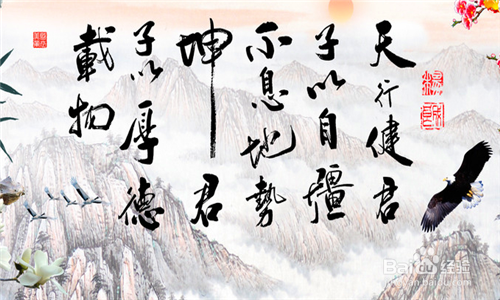 天行健君
子以自彊
不息地勢
坤君
子以厚德
載物
Baidu经验